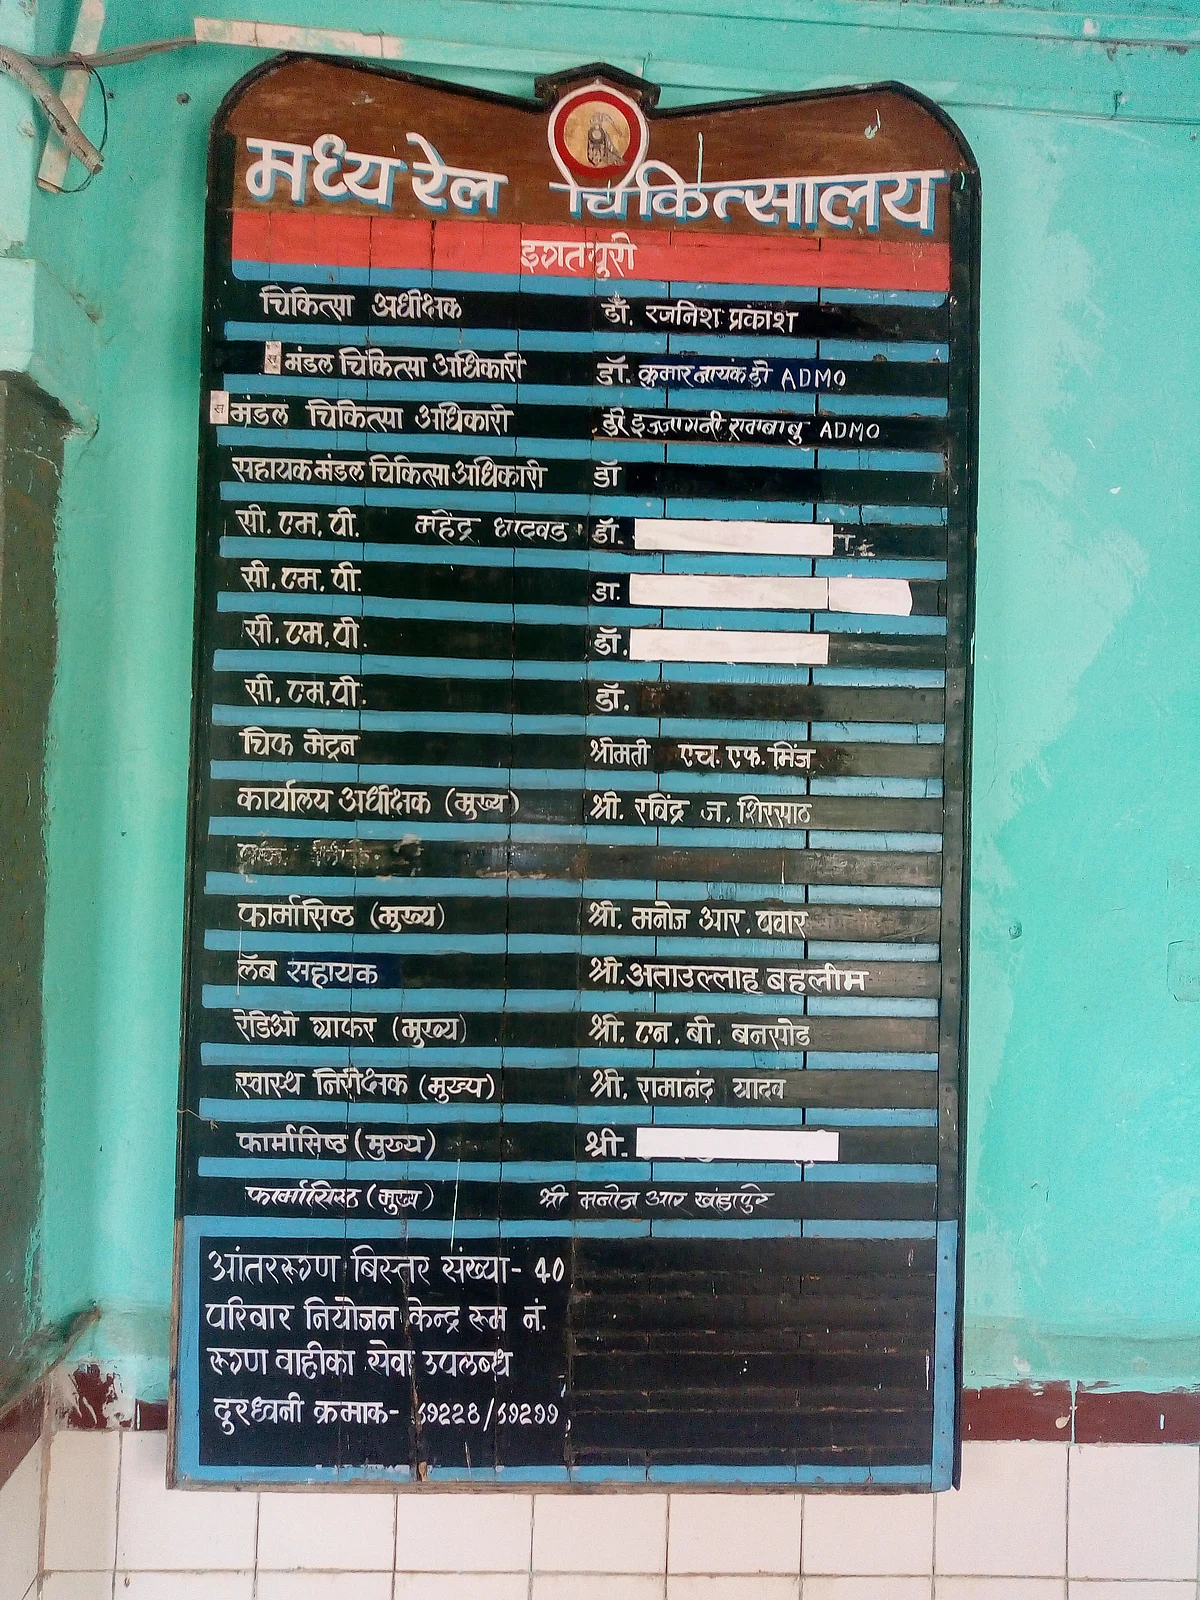 मध्य रेल चिकित्सालय
इगतपुरी
चिकित्सा अधीक्षक डॉ. रजनिश प्रकाश
स मंडल चिकित्सा अधिकारी डॉ. कुमार नायक डी ADMO
स मंडल चिकित्सा अधिकारी डॉ ADMO
सहायक मंडल चिकित्सा अधिकारी डॉ
सी. एम. पी. महेंद्र डॉ.
सी. एम. पी. डा.
सी. एम. पी. डॉ.
सी. एम. पी. डॉ.
चिफ मेट्रन श्रीमती एच. एफ. मिंज
कार्यालय अधीक्षक (मुख्य) श्री. रविंद्र ज. शिरसाठ
फार्मासिष्ठ (मुख्य) श्री. मनोज आर. पवार
लॅब सहायक श्री. अताउल्लाह बहलीम
रेडिओ ग्राफर (मुख्य) श्री. एन. बी. बनसोड
स्वास्थ निरीक्षक (मुख्य) श्री. रामानंद यादव
फार्मासिष्ठ (मुख्य) श्री.
फार्मासिस्ठ (मुख्य) श्री मनोज आर खंडापुरे
आंतररूग्ण बिस्तर संख्या- 40
परिवार नियोजन केन्द्र रूम नं.
रूग्ण वाहीका सेवा उपलब्ध
दुरध्वनी क्रमाक-